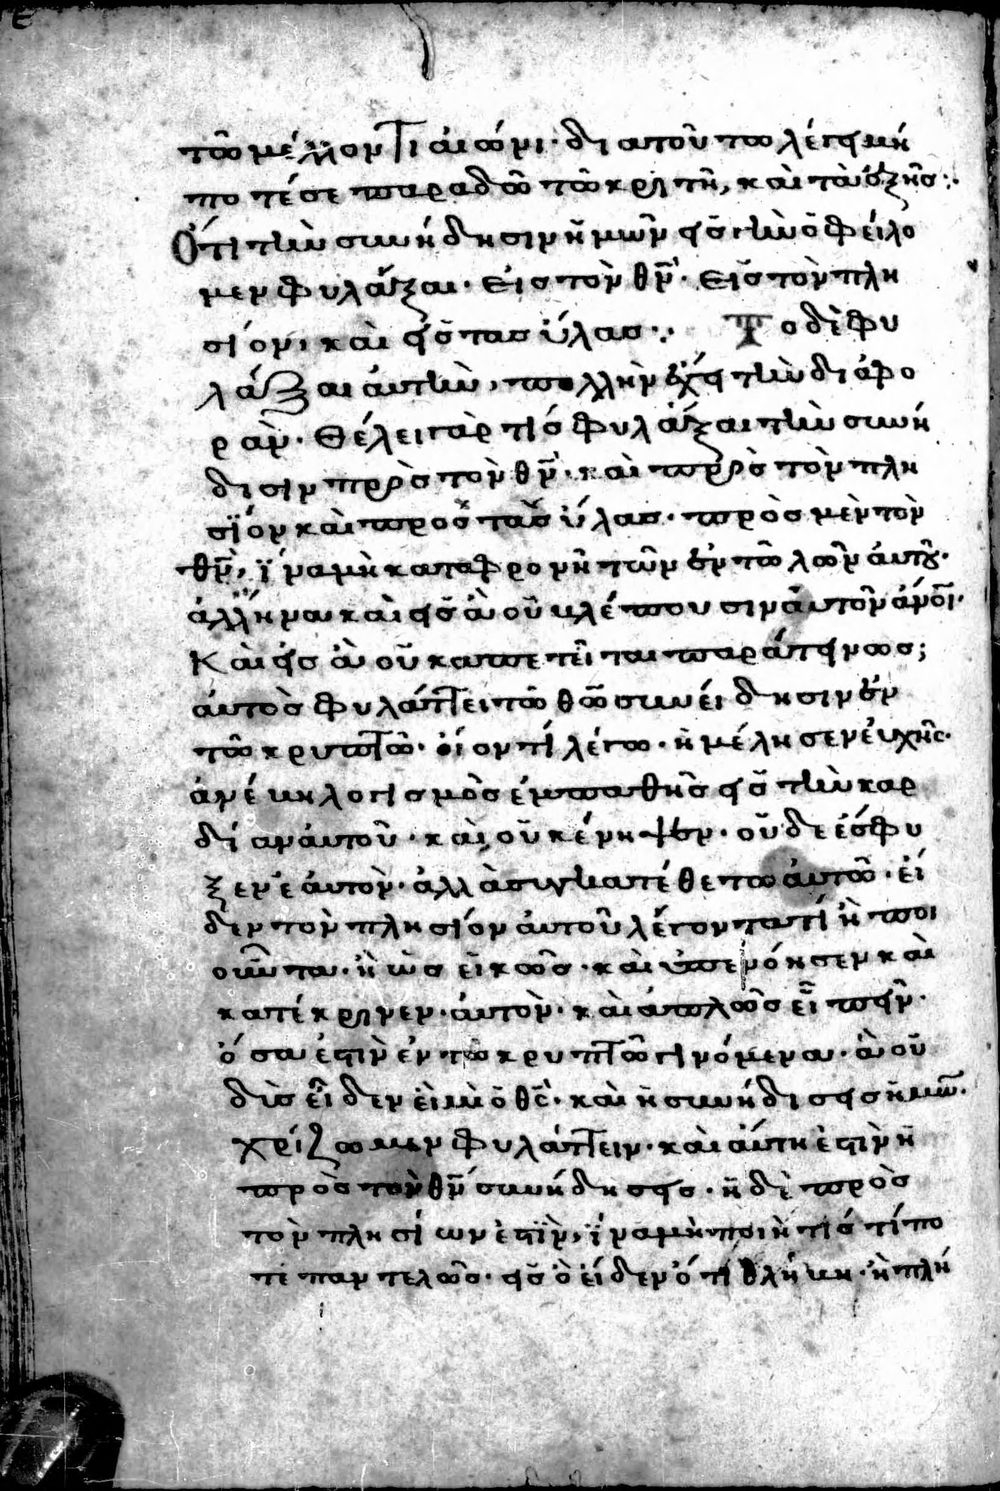 τῶ μέλλοντι αἰῶνι· διατοῦτο λέγει μή
ποτέ σε παραδῶ τῶ κριτῆ, καὶ τὰ ἑξῆς:·
Ὅτι τὴν συνήδησιν ἡμῶν εἰς τὴν ὀφείλο
μεν φυλάξαι· εἰς τὸν θν̄· εἰς τὸν πλη
σίον, καὶ εἰς τὰς ὕλας:· Τὸ δὲ φυ
λάξαι αὐτὴν, πολλὴν ἔχει τὴν διάφο
ράν· Θέλει γάρ τίς φυλάξαι τὴν συνή
δισιν πρὸς τὸν θν̄· καὶ πρὸς τὸν πλη
σΐον καὶ πρὸς τὰς ὕλας· πρὸς μὲν τὸν
θν̄, ΐνα μὴ καταφρονῆ τῶν ἐντολῶν αὐτοῦ·
ἀλλ' ἵνα καὶ εἰς ἃ οὐ βλέπουσιν αὐτὸν ἄνοι·
Καὶ εἰς ἃ οὐκ ἀπετεῖται παρά τινος;
αὐτὸς φυλάττει τῶ θῶ συνείδησιν ἐν
τῶ κρυπτῶ· οἷον τί λέγω· ἠμέλησεν εὐχῆς·
ἀνέβη λογισμὸς ἐμπαθὴς εἰς τὴν καρ
δίαν αὐτοῦ· καὶ οὐκ ἔνηψεν· οὐδε ἔσφυ
ξεν ἑαυτὸν· ἀλλὰ συγκατέθετο αὐτῶ· εἰ
δεν τὸν πλησίον αὐτοῦ λέγοντα τί ἢ ποι
οῦντα· ἢ ὡς εἰκῶς· καὶ ὑπενόησεν καὶ
κατέκρινεν· αὐτὸν· καὶ ἁπλῶς εἰπεῖν·
ὅσα ἐστὶν ἐν τῶ κρυπτῶ γινόμενα· ἃ οὐ
δὶς εἶδεν εἰ μὴ ὁ θς̄· καὶ ἡ συνήδισις ἡμῶν·
χρίζωμεν φυλάττειν· καὶ αὕτη ἐστὶν ἡ
πρὸς τὸν θν̄ συνήδησις· ἡ δὲ πρὸς
τὸν πλησίων ἐστὶν, ΐνα μὴ ποιῆ τίς τίπο
τε παντελῶς· εἰς ὃ εἶδεν ὅτι θλήβη· ἢ πλή